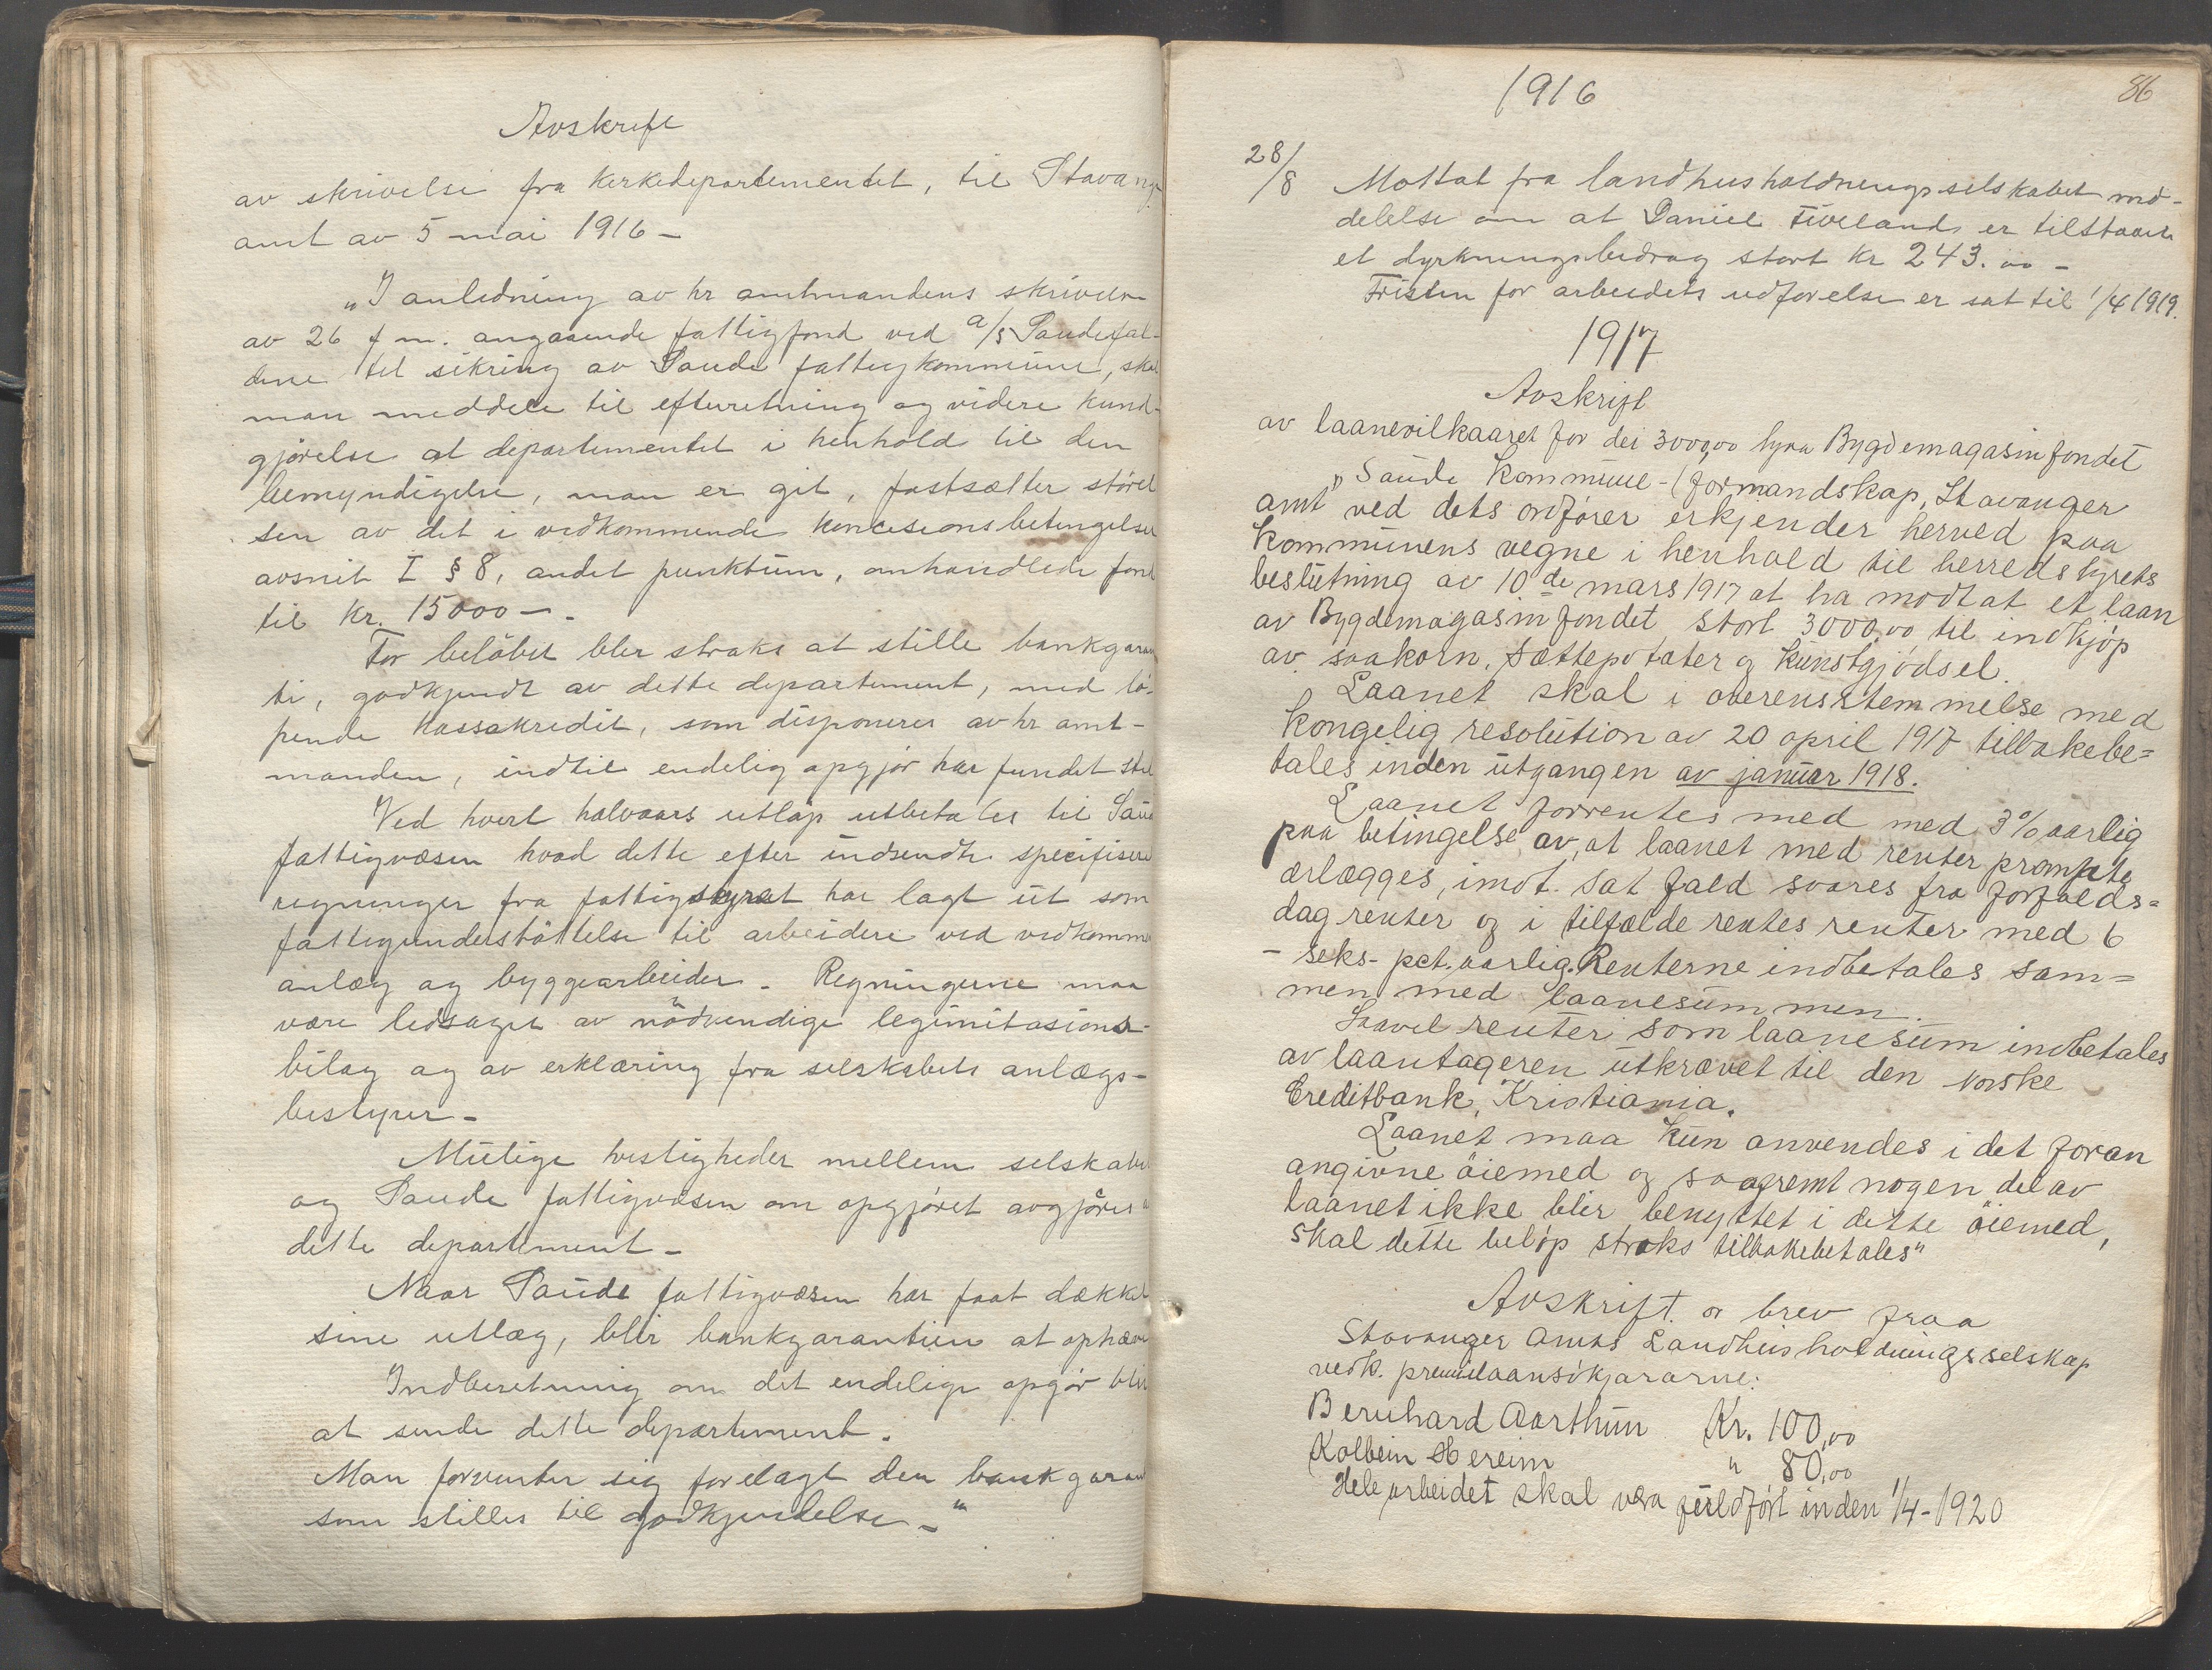 Avskrift
av skrivelse fra Kerkedepartementet, til Stavang
amt av 5 mai 1916 –
"I anledning av hr amtmandens skrivelse
av 26 f m. angaaende fattigfond ved a/s Saudefal-
dene til sikring av Saude fattigkommune, skal
man meddele til efterretning og videre kund-
gjørelse at departementet i henhold til den
bemyndigelse, man er git, fastsætter størel
sen av det i vedkommende koncesionsbetingelser
avsnit I § 8, andet punktum, omhandlede fond
til kr. 15000 –.
For beløbet blir straks at stille bankgaran
ti, godkjendt av dette departement, med lø-
pende kassakredit, som disponeres av hr amt-
manden, indtil endelig opgjør har fundet sted
Ved hvert halvaars utløp utbetales til Saud
fattigvæsen hvad dette efter indsendte specifisere
regninger fra fattigstyret har lagt ut som
fattigunderstøttelse til arbeidere ved vedkomme
anlæg og byggearbeider – Regningerne maa
være ledsaget av nødvendige legimitasions-
bilag og av erklæring fra selskabets anlægs-
bestyrer –
Mulige tvistigheder mellem selskabet
og Saude fattigvæsen om opgjøret avgjøres a
dette departement –
Naar Saude fattigvæsen har faat dækket
sine utlæg, blir bankgarantien at ophæve
Indberetning om det endelige opgjør blir
at sende dette departement.
Man forventer sig forelagt den bankgaran
som stilles til godkjendelse – "
1916
86
28/8 Mottat fra landhusholdningsselskabet med-
delelse om at Daniel Fiveland er tilstaaet
et dyrkningsbidrag stort kr 243.00 –
Fristen for arbeidets udførelse er sat til 1/4 1919.
1917
Avskrift
av laanevilkaaret for dei 3000,00 hyra Bygdemagasinfondet
"Saude Kommune-(formandskap, Stavanger
amt" ved dets ordfører erkjender herved paa
Kommunens vegne i henhold til herredstyrets
beslutning av 10de mars 1917 at ha modtat et laan
av Bygdemagasinfondet stort 3000,00 til indkjøp
av saakorn, sættepoteter og kunstgjødsel.
Laanet skal i overensstemmelse med
kongelig resolution av 20 april 1917 tilbakebe=
tales inden utgangen av januar 1918.
Laanet forrentes med med 3% aarlig
paa betingelse av, at laanet med renter prompte
erlægges, imot. sat fald svares fra forfalds=
dag renter og i tilfælde rentes renter med 6
– seks – pct. aarlig. Renterne indbetales sam=
men med laanesummen.
Saavel renter som laanesum indbetales
av laantageren utkrævet til den norske
Creditbank, Kristiania.
Laanet maa kun anvendes i det foran
angivne øiemed og saafremt nogen del av
laanet ikke blir benyttet i dette øiemed,
skal dette beløp straks tilbakebetales"
Avskrift. av brev fraa
Stavanger Amts Landhusholdningsselskap
vedk. premielaansøkjararne:
Bernhard Aarthun Kr. 100,00
Kolbein Hereim " 80,00
Hele arbeidet skal vera fuldført inden 1/4-1920